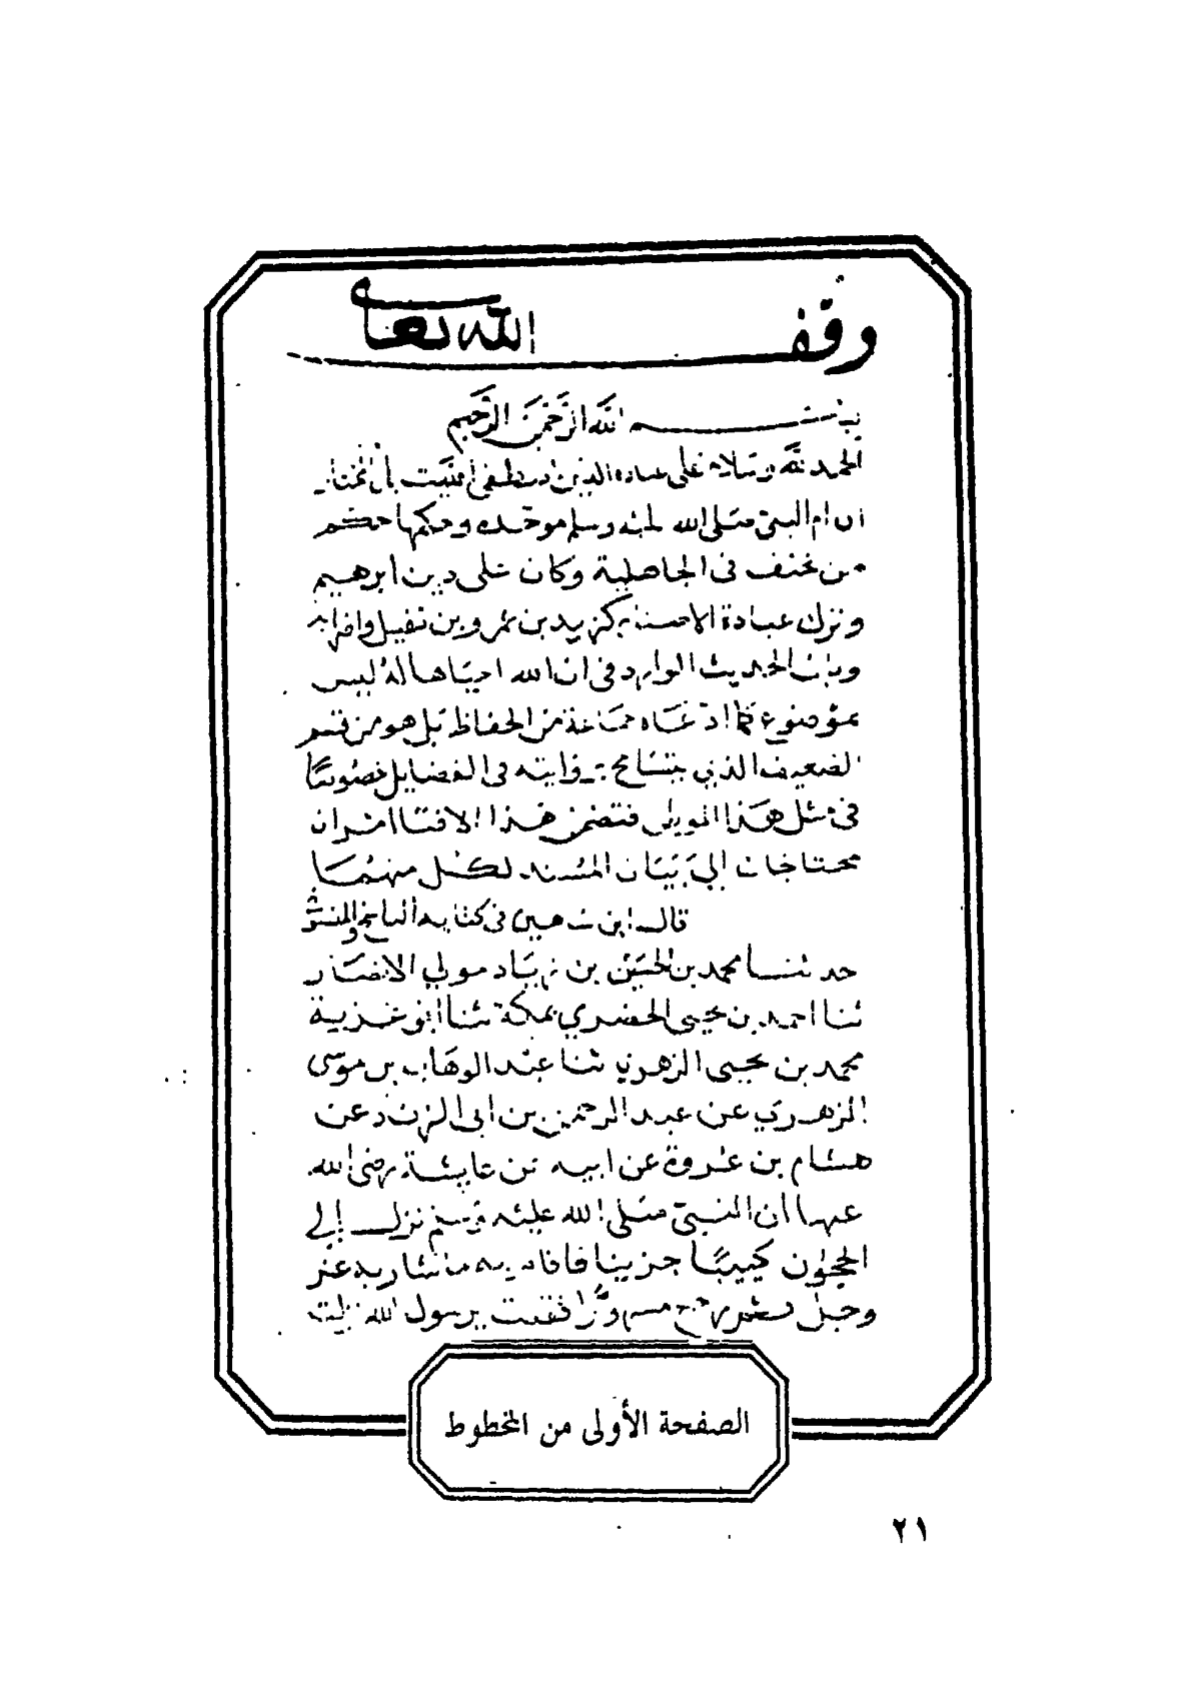 وقف الله تعالى
بسم الله الرحمن الرحيم
الحمد لله وسلام على عباده الذين اصطفى افتيت بأن المختار
ان ام النبي صلى الله عليه وسلم موحده وحكمها حكم
من تحنف في الجاهلية وكان على دين ابرهيم
وترك عبادة الاصنام كزيد بن عمرو بن نفيل واضرابه
وبان الحديث الوارد في ان الله احياها له ليس
بموضوع كما ادعاه جماعة من الحفاظ بل هو من قسم
الضعيف الذي يتسامح بروايته في الفضايل خصوصا
في مثل هذا الموطن فتضمن هذا الافتا امران
محتاجان الي بيان المسند لكل منهما
قال ابن شاهين في كتابه الناسخ والمنسوخ
حدثنا محمد بن الحسن بن زياد مولي الانصار
ثنا احمد بن يحيى الحضري بمكة ثنا ابو غزية
محمد بن يحيى الزهري ثنا عبد الوهاب بن موسى
الزهري عن عبد الرحمن بن ابي الزناد عن
هشام بن عروة عن ابيه عن عايشة رضي الله
عنها ان النبي صلى الله عليه وسلم نزل إلي
الحجون كييبا حزينا فاقام به ما شا ربه عز
وجل ثم رجع مسرورا فقلت يرسول الله نزلت
الصفحة الأولى من المخطوط
٢١